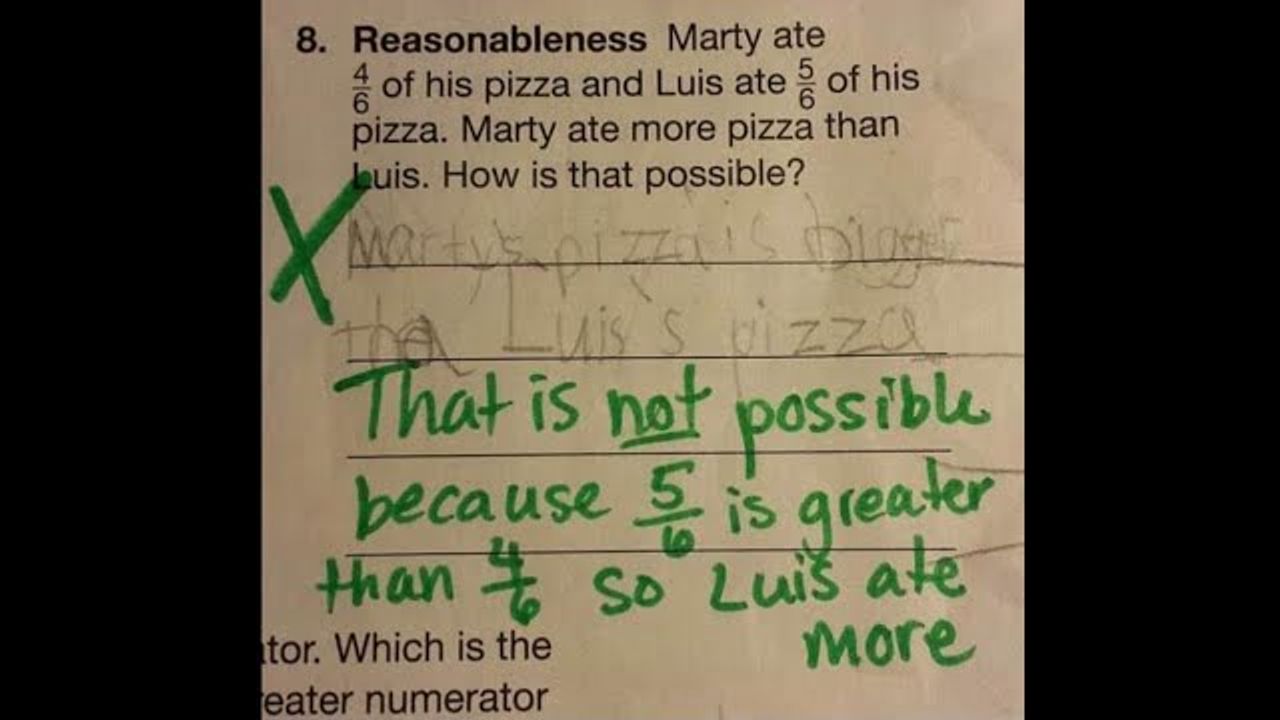 8. Reasonableness Marty ate
4/6 of his pizza and Luis ate 5/6 of his
pizza. Marty ate more pizza than
Luis. How is that possible?
Marty's pizza is bigger
tha Luis's pizza
That is not possible
because 5/6 is greater
than 4/6 so Luis ate
more
ator. Which is the
reater numerator